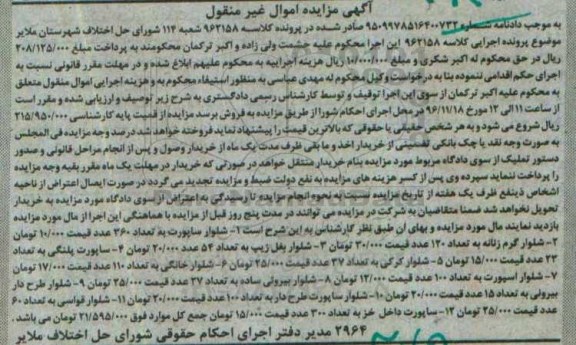 آگهی مزایده اموال غیر منقول
به موجب دادنامه شماره ۹۵۰۹۹۷۸۵۱۶۴۰۰۷۳۲ صادر شده در پرونده کلاسه ۹۶۲۱۵۸ شعبه ۱۱۴ شورای حل اختلاف شهرستان ملایر
موضوع پرونده اجرایی کلاسه ۹۶۲۱۵۸ این اجرا محکوم علیه حشمت ولی زاده و اکبر ترکمان محکومند به پرداخت مبلغ ۲۰۸/۱۲۵/۰۰۰
ریال در حق محکوم له اکبر شکری و مبلغ ۱۰/۰۰۰/۰۰۰ ریال هزینه اجراییه به محکوم علیهم ابلاغ شده و در مهلت مقرر قانونی نسبت به
اجرای حکم اقدامی ننموده بنا به درخواست وکیل محکوم له مهدی عباسی به منظور استیفاء محکوم به و هزینه اجرایی اموال منقول متعلق
به محکوم علیه اکبر ترکمان از سوی این اجرا توقیف و توسط کارشناس رسمی دادگستری به شرح زیر توصیف و ارزیابی شده و مقرر است
از ساعت ۱۱ الی ۱۲ مورخ ۹۶/۱۱/۱۸ در محل اجرای احکام شورا از طریق مزایده به فروش برسد مزایده از قیمت پایه کارشناسی ۲۱۵/۹۵۰/۰۰۰
ریال شروع می شود و به هر شخص حقیقی یا حقوقی که بالاترین قیمت را پیشنهاد نماید فروخته خواهد شد درصد وجه مزایده فی المجلس
به صورت وجه نقد یا چک بانکی تضمینی از خریدار اخذ و ما بقی ظرف مدت یک ماه از خریدار وصول و پس از انجام مراحل قانونی و صدور
دستور تملیک از سوی دادگاه مربوط مورد مزایده بنام خریدار منتقل خواهد در صورتی که خریدار در مهلت یک ماه مقرر بقیه وجه مزایده
را پرداخت ننماید سپرده وی پس از کسر هزینه های مزایده به نفع دولت ضبط و مزایده تجدید می گردد در صورت ایصال اعتراض از ناحیه
اشخاص ذینفع ظرف یک هفته از تاریخ مزایده نسبت به نحوه انجام مزایده تا رسیدگی به اعتراض از سوی دادگاه مورد مزایده به خریدار
تحویل نخواهد شد ضمنا متقاضیان به شرکت در مزایده می توانند در مدت پنج روز قبل از مزایده با هماهنگی این اجرا از مال مورد مزایده
بازدید نمایند مال مورد مزایده و بهای آن طبق نظر کارشناس به این شرح است ۱- شلوار ساپورت به تعداد ۳۶۰ عدد قیمت ۱۰/۰۰۰ تومان
۲- شلوار گرم زنانه به تعداد ۱۲۰ عدد قیمت ۳۰/۰۰۰ تومان ۳- شلوار بغل زیپ به تعداد ۵۴ عدد ۲۰/۰۰۰ تومان ۴- ساپورت پلنگی به تعداد
۲۳ عدد قیمت ۱۵/۰۰۰ تومان ۵- شلوار کرکی به تعداد ۳۷ عدد قیمت ۲۵/۰۰۰ تومان ۶- شلوار خانگی به تعداد ۱۱۰ عدد قیمت ۱۷/۰۰۰ تومان
۷- شلوار اسپورت به تعداد ۱۰۰ عدد قیمت ۱۲/۰۰۰ تومان ۸- شلوار بیرونی ساده به تعداد ۳۷ عدد قیمت ۲۵/۰۰۰ تومان ۹- شلوار طرح دار
بیرونی به تعداد ۱۵ عدد قیمت ۲۰/۰۰۰ تومان ۱۰- شلوار ساپورت طرح دار به تعداد ۱۰۰ عدد قیمت ۲۰/۰۰۰ تومان ۱۱- شلوار فواسی به تعداد ۶۰
عدد قیمت ۲۵/۰۰۰ تومان ۱۲- ساپورت داخل خز به تعداد ۳۰۰ عدد قیمت ۱۵/۰۰۰ تومان جمع کل موارد فوق ۲۱/۵۹۵/۰۰۰ تومان می باشد.
۲۹۶۴ مدیر دفتر اجرای احکام حقوقی شورای حل اختلاف ملایر